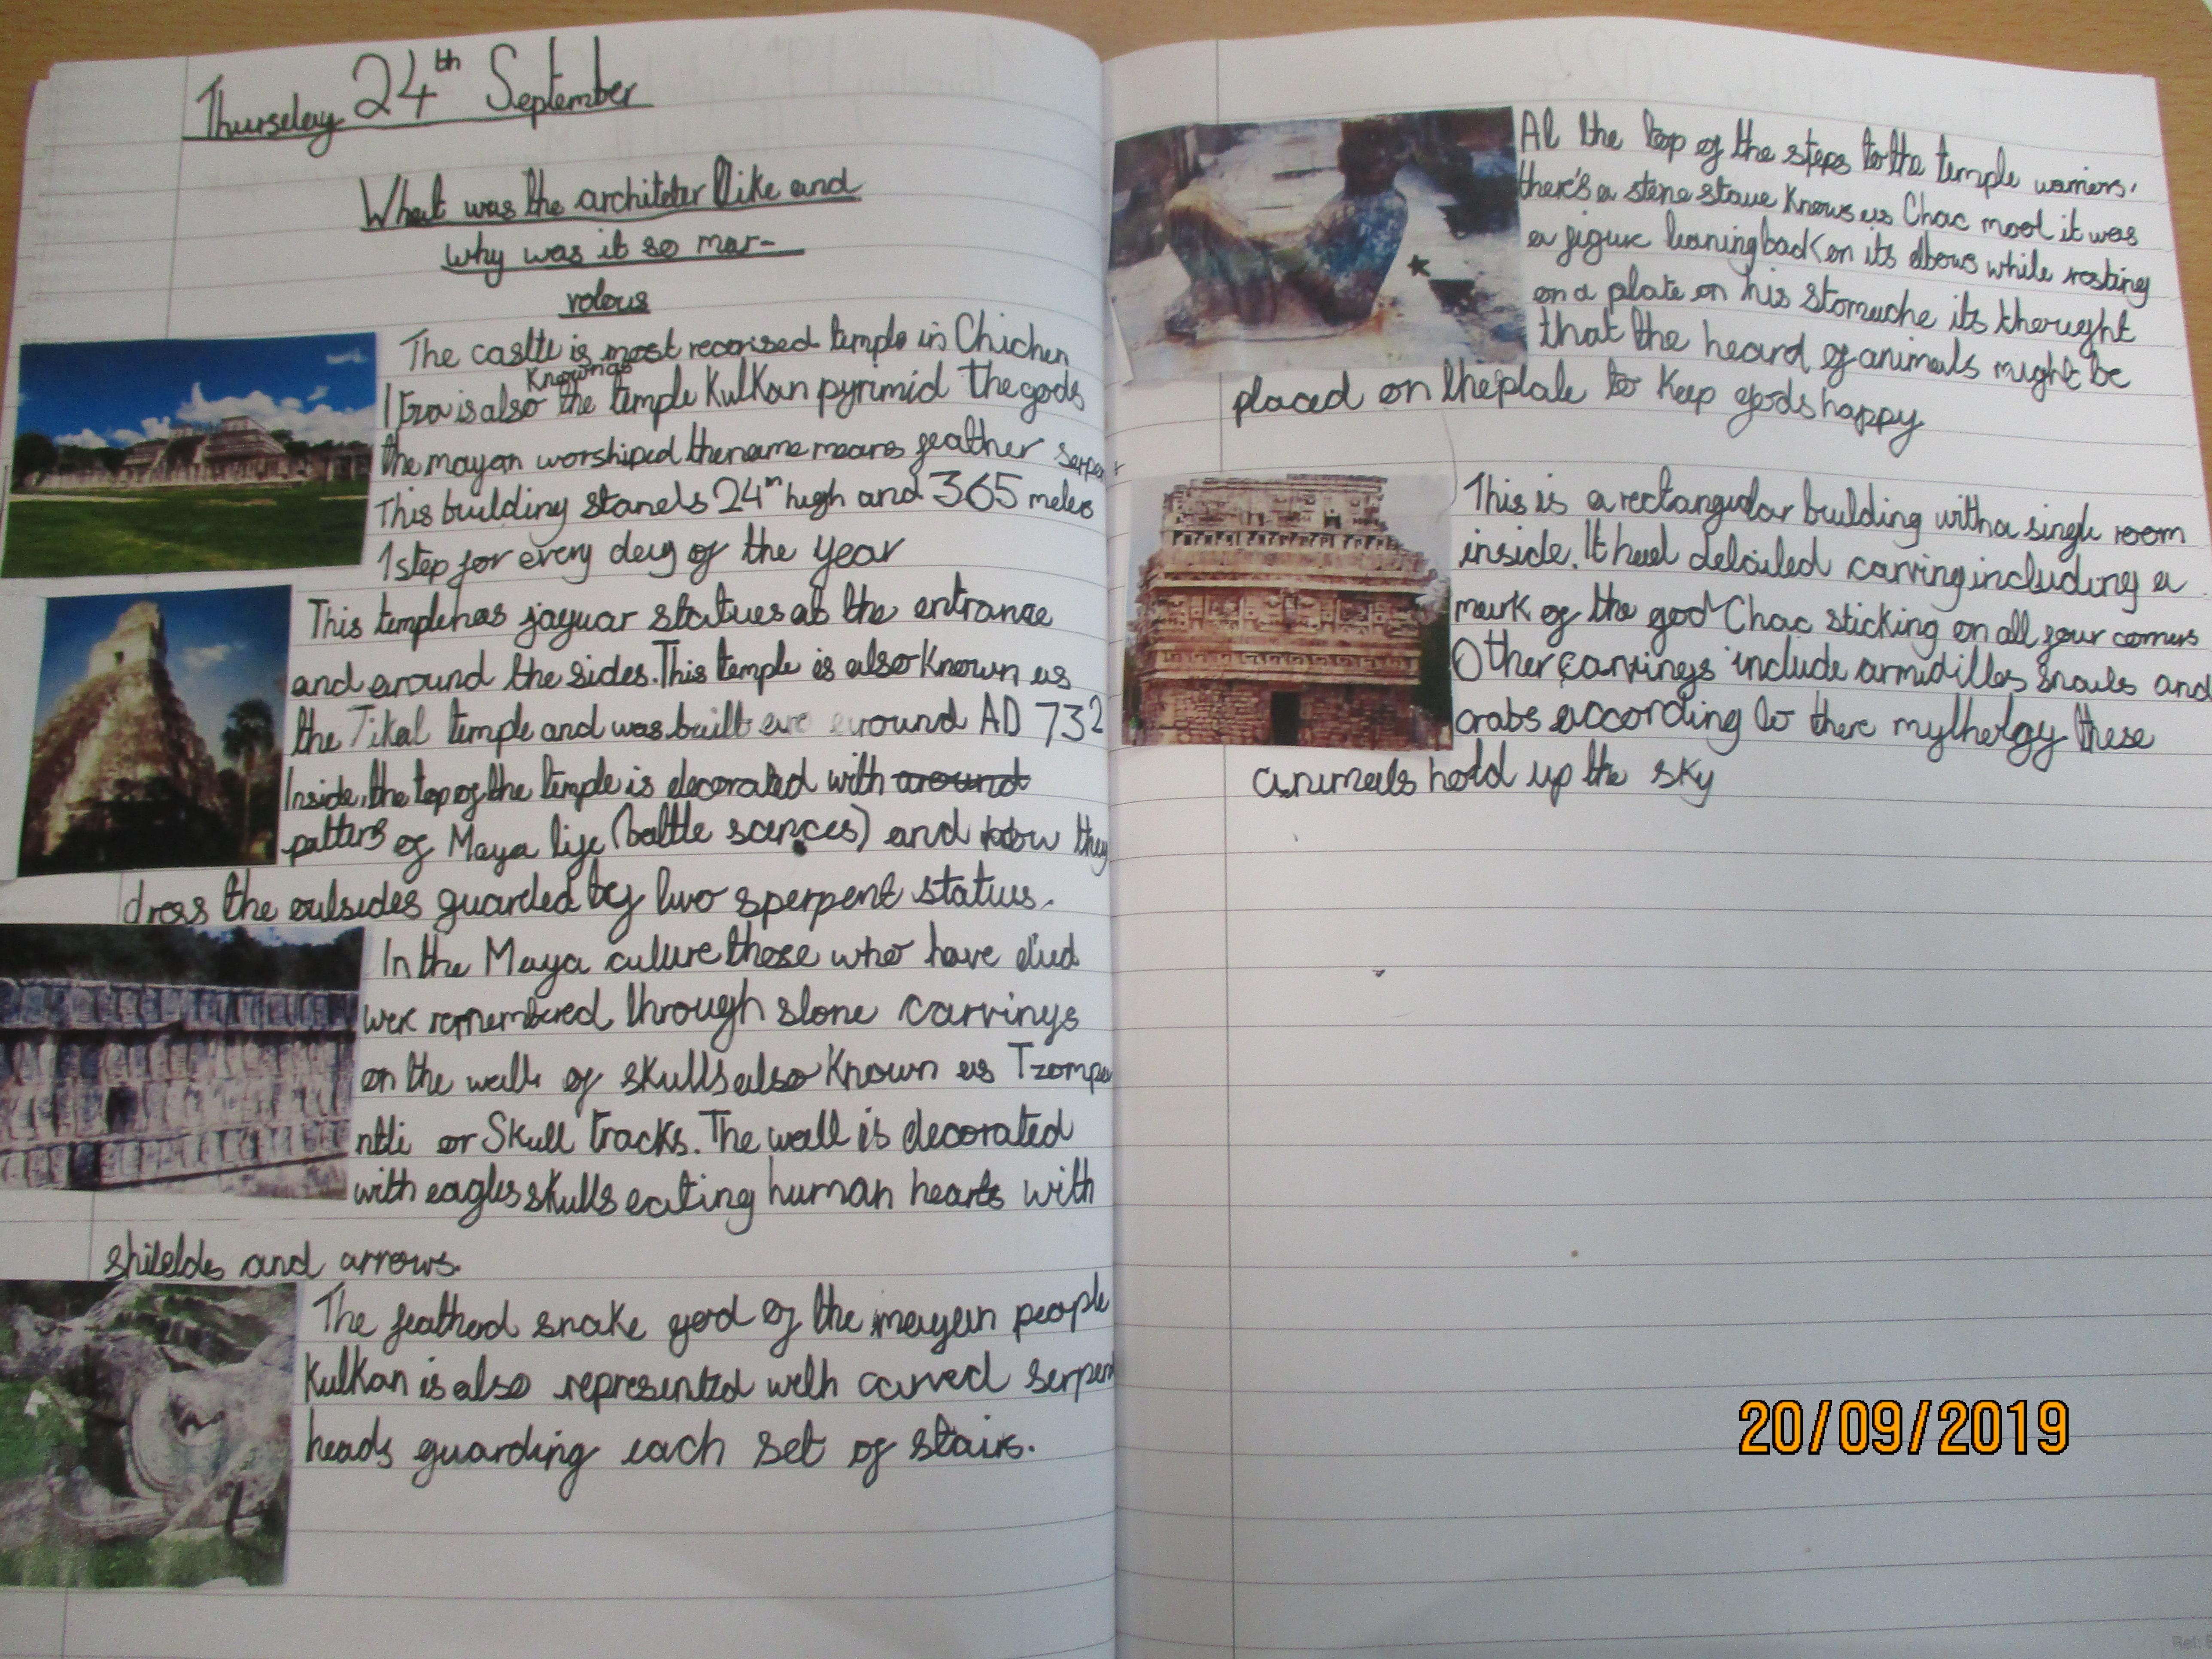 Thursday 24th September
What was the architeter like and
why was it so mar-
velous
The castle is most recorised temple in Chichen
Knownas
Itza is also the temple Kulkan pyrimid the gods
the mayan worshiped the name means feather serpent
This building stands 24m high and 365 meters
1 step for every day of the year
This temple has jaguar statues at the entrance
and around the sides. This temple is also Known as
the Tikal temple and was built around AD 732
Inside, the top of the temple is decorated with around
patters of Maya life (battle scences) and how they
dress the outsides guarded by two sperpent status.
In the Maya culure those who have died
were remembered through stone carvings
on the walls of skulls also Known as Tzompa
ntli or Skull tracks. The wall is decorated
with eagles skulls eating human hearts with
shields and arrows.
The feathed snake god of the mayan people
Kulkan is also represented with carved serpent
heads guarding each set of stairs.
At the top of the steps to the temple warriors,
there's a stone staue Known as Chac mool it was
a figure leaning back on its elbows while resting
on a plate on his stomache its thought
that the heard of animals might be
placed on the plate to Keep gods happy
This is a rectangular building with a single room
inside. It had detailed carving including a
mark of the god Chac sticking on all four corners
Other carvings include armidillos snails and
crabs according to there mythology these
animals hold up the sky
20/09/2019